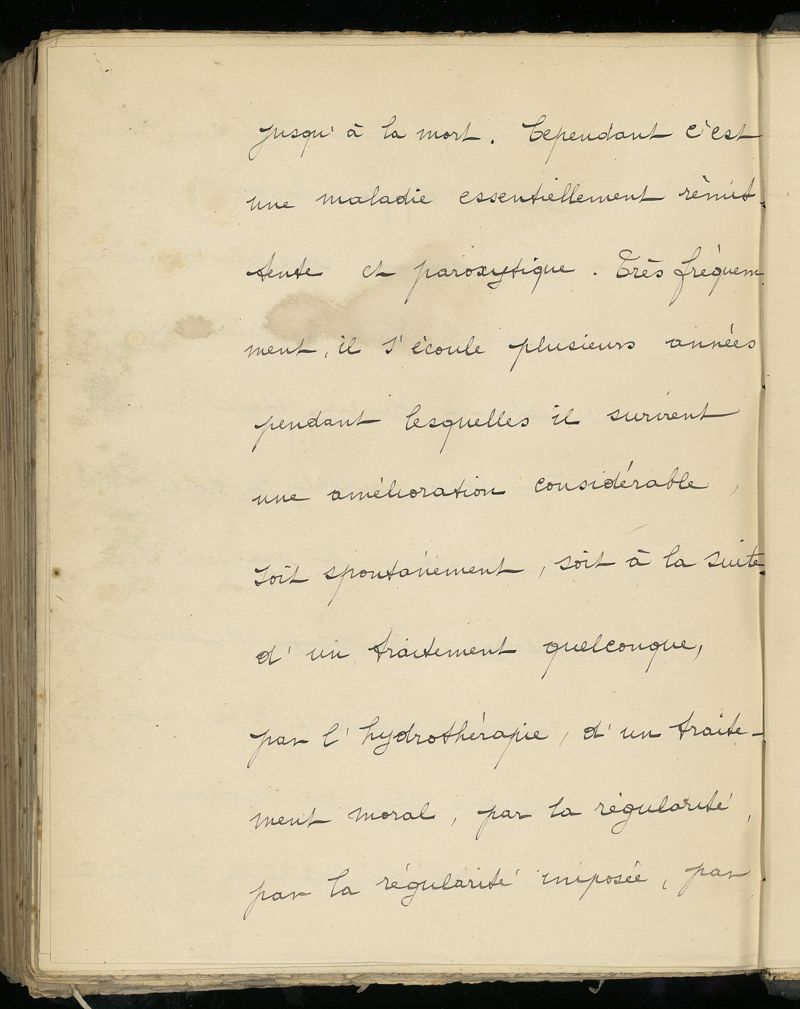 jusqu'à la mort. Cependant c'est
une maladie essentiellement rémit-
tente et paroxytique. Très fréquem
ment, il s'écoule plusieurs années
pendant lesquelles il survient
une amélioration considérable,
soit spontanément, soit à la suite
d'un traitement quelconque,
par l'hydrothérapie, d'un traite-
ment moral, par la régularité,
par la régularité imposée, par